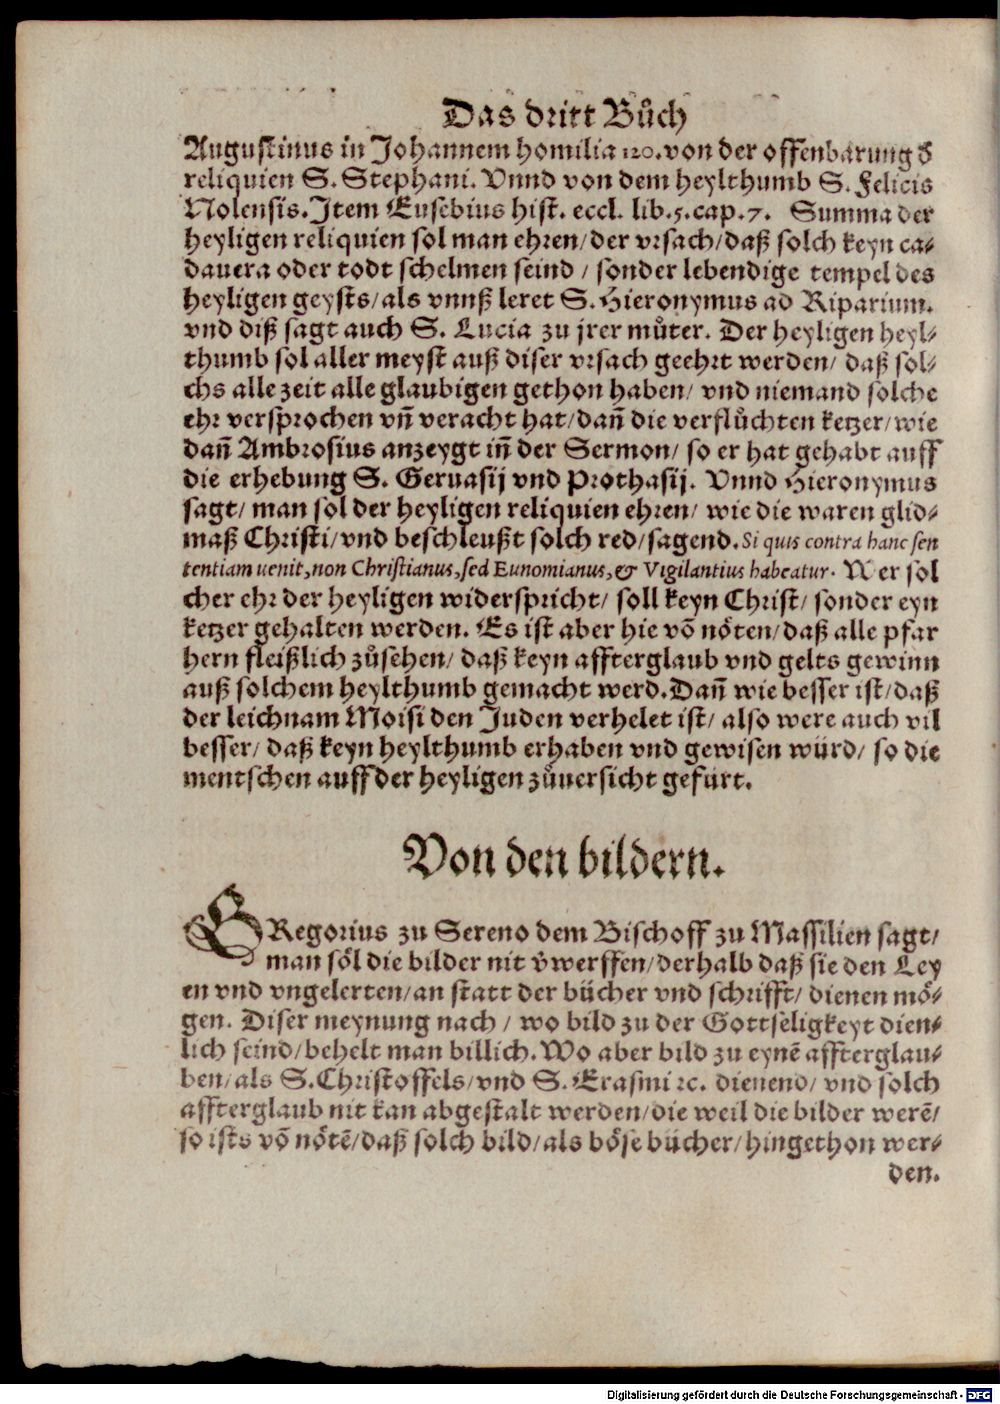 Das dritt Bůch
Augustinus in Johannem homilia 120. von der offenbarung d̕
reliquien S. Stephani. Vnnd von dem heylthumb S. Felicis
Nolensis. Item Eusebius hist. eccl. lib. 5. cap. 7. Summa der
heyligen reliquien sol man ehren/ der vrsach/ daß solch keyn ca⸗
dauera oder todt schelmen seind / sonder lebendige tempel des
heyligen geysts/ als vnnß leret S. Hieronymus ad Riparium.
vnd diß sagt auch S. Lucia zu jrer můter. Der heyligen heyl⸗
thumb sol aller meyst auß diser vrsach geehrt werden/ daß sol⸗
chs alle zeit alle glaubigen gethon haben/ vnd niemand solche
ehr versprochen vñ veracht hat/ dañ die verflůchten ketzer/ wie
dañ Ambrosius anzeygt iñ der Sermon/ so er hat gehabt auff
die erhebung S. Geruasij vnd Prothasij. Vnnd Hieronymus
sagt/ man sol der heyligen reliquien ehren/ wie die waren glid⸗
maß Christi/ vnd beschleußt solch red/ sagend. Si quis contra hanc sen
tentiam uenit, non Christianus, sed Eunomianus, & Vigilantius habeatur. Wer sol
cher ehr der heyligen widerspricht/ soll keyn Christ/ sonder eyn
ketzer gehalten werden. Es ist aber hie võ nöten/ daß alle pfar
hern fleißlich zůsehen/ daß keyn affterglaub vnd gelts gewinn
auß solchem heylthumb gemacht werd. Dañ wie besser ist/ daß
der leichnam Moisi den Juden verhelet ist/ also were auch vil
besser/ daß keyn heylthumb erhaben vnd gewisen würd/ so die
mentschen auff der heyligen zůuersicht gefürt.
Von den bildern.
GRegorius zu Sereno dem Bischoff zu Massilien sagt/
man söl die bilder nit v̓werffen/ derhalb daß sie den Ley
en vnd vngelerten/ an statt der bücher vnd schrifft/ dienen mö⸗
gen. Diser meynung nach / wo bild zu der Gottseligkeyt dien⸗
lich seind/ behelt man billich. Wo aber bild zu eynē affterglau⸗
ben/ als S. Christoffels/ vnd S. Erasmi ꝛc. dienend/ vnd solch
affterglaub nit kan abgestalt werden/ die weil die bilder werē/
so ists võ nötē/ daß solch bild/ als böse bücher/ hingethon wer⸗
den.
Digitalisierung gefördert durch die Deutsche Forschungsgemeinschaft - DFG